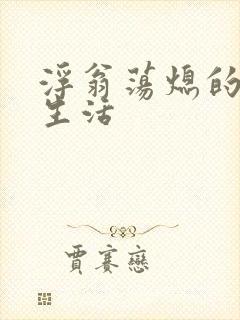 浮翁荡熄的
生活
賈赛戀